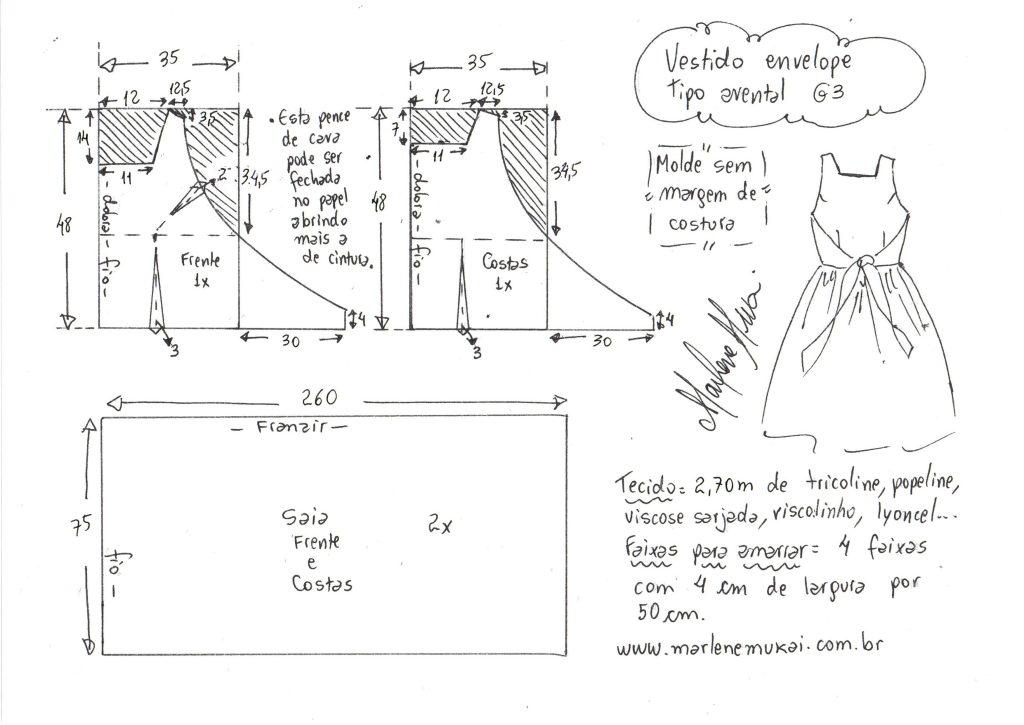 Vestido envelope
Tipo avental G3
"
Molde sem
margem de
costura
"
35
12
12,5
3,5
14
11
2
34,5
48
- dobra - fio -
Frente
1x
3
30
4
• Esta pence
de cava
pode ser
fechada
no papel
abrindo
mais a
de cintura.
35
12
12,5
3,5
7
11
34,5
48
- dobra - fio -
Costas
1x
3
30
4
Marlene Mukai
260
- Franzir -
75
fio -
Saia
Frente
e
Costas
2x
Tecido = 2,70m de tricoline, popeline,
viscose sarjada, viscolinho, lyoncel...
Faixas para amarrar = 4 faixas
com 4 cm de largura por
50 cm.
www.marlenemukai.com.br